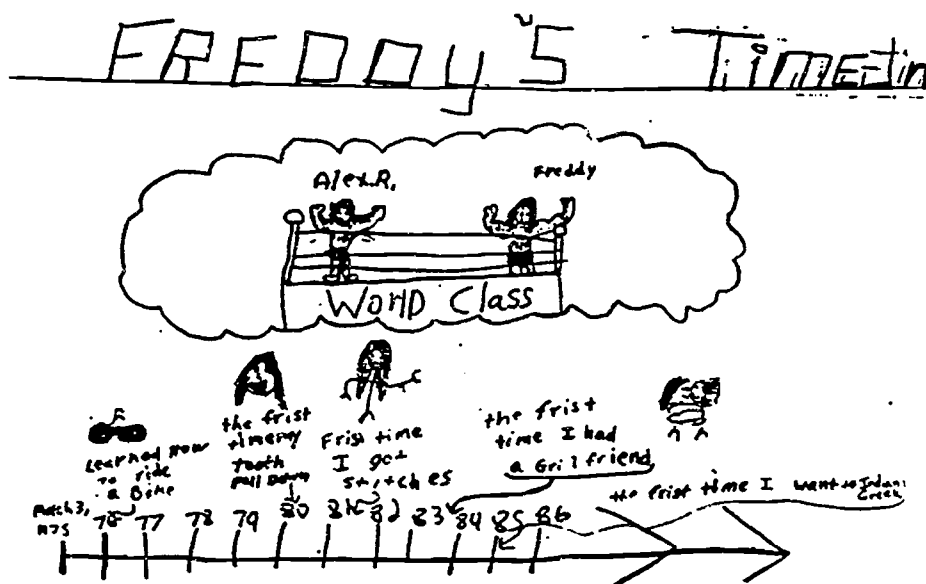 FREDDy'S Time-Lin
Alex.R. Freddy
WORlD Class
Learned How
to ride
a Bike
the frist
time my
tooth
pull Down
Frist time
I got
stitches
the frist
time I had
a Gril friend
the frist time I want to Indani
Creek
March 3,
1975
76 77 78 79 80 81 82 83 84 85 86